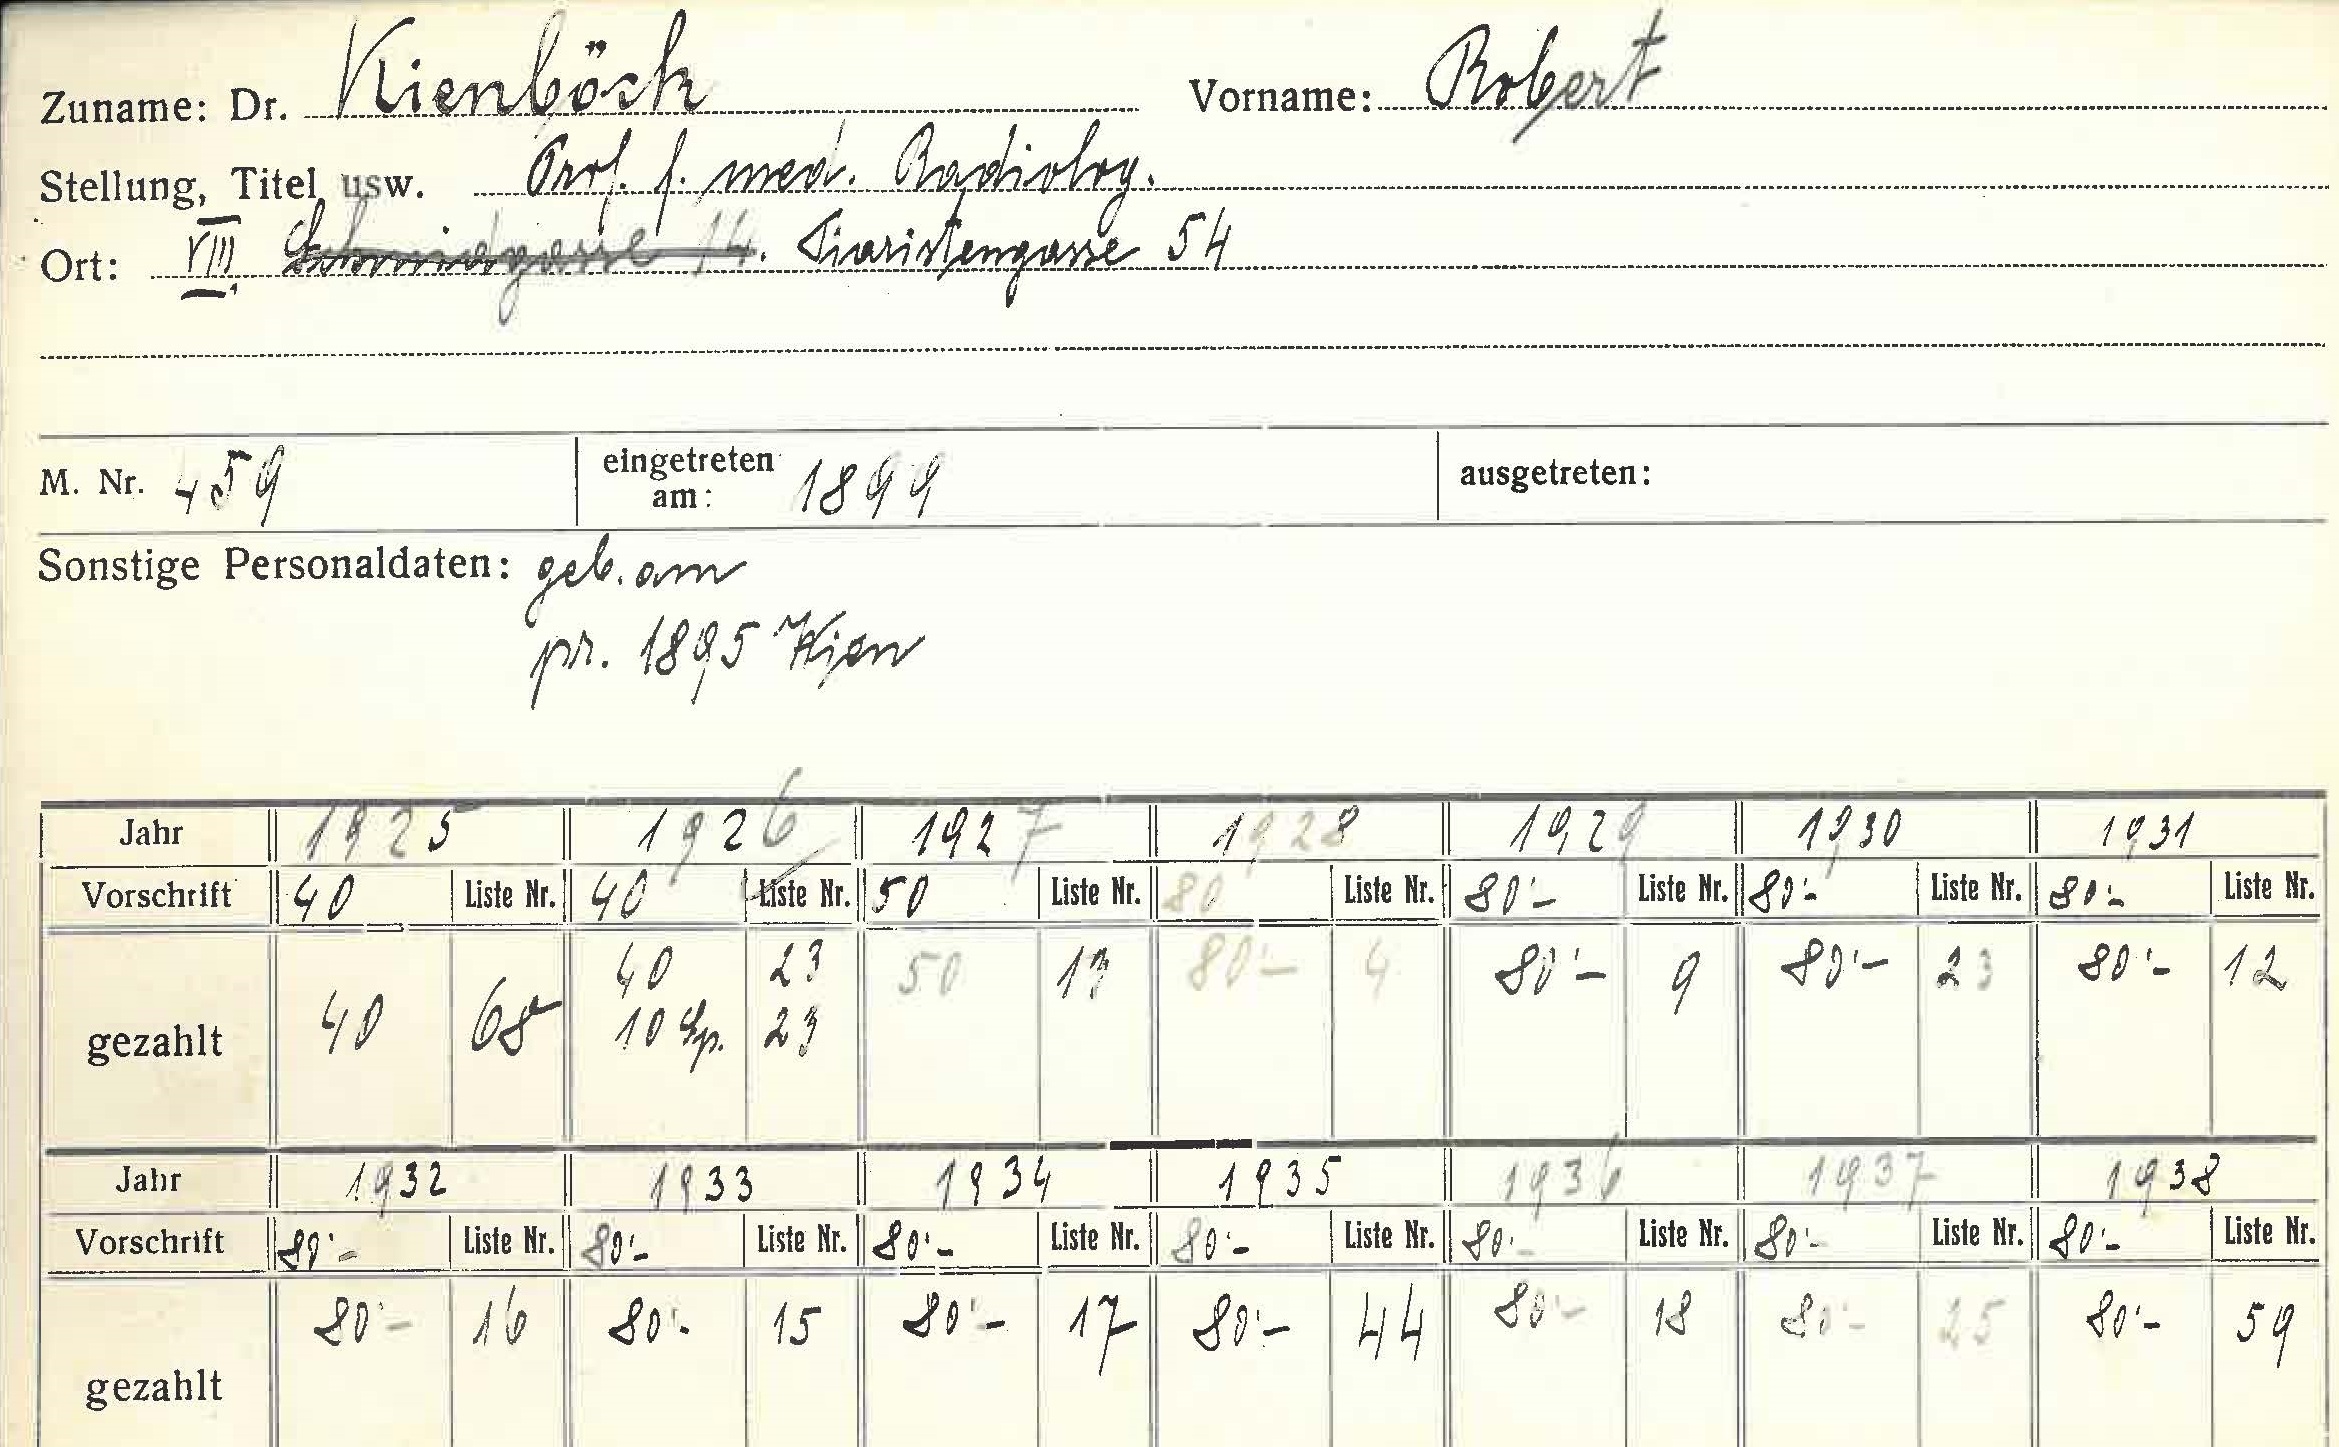 Zuname: Dr. Kienböck Vorname: Robert
Stellung, Titel usw. Prof. f. med. Radiolog.
Ort: VIII. Schmidgasse 14. Piaristengasse 54
M. Nr. 459 eingetreten am: 1899 ausgetreten:
Sonstige Personaldaten: geb. am
pr. 1895 Wien
Jahr 1925 1926 1927 1928 1929 1930 1931
Vorschrift 40 Liste Nr. 40 Liste Nr. 50 Liste Nr. 80 Liste Nr. 80'- Liste Nr. 80'- Liste Nr. 80'- Liste Nr.
gezahlt 40 68 40 23 50 13 80'- 4 80'- 9 80'- 23 80'- 12
10 Sp. 23
Jahr 1932 1933 1934 1935 1936 1937 1938
Vorschrift 80'- Liste Nr. 80'- Liste Nr. 80'- Liste Nr. 80'- Liste Nr. 80'- Liste Nr. 80'- Liste Nr. 80'- Liste Nr.
gezahlt 80'- 16 80'- 15 80'- 17 80'- 44 80'- 18 80'- 25 80'- 59